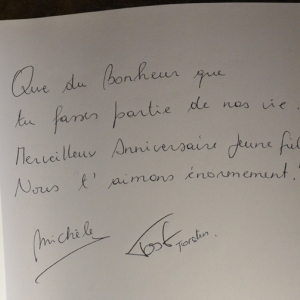 Que du Bonheur que
tu fasses partie de nos vie.
Merveilleux Anniversaire Jeune
Nous t'aimons énormément!
Michèle
Torsten.